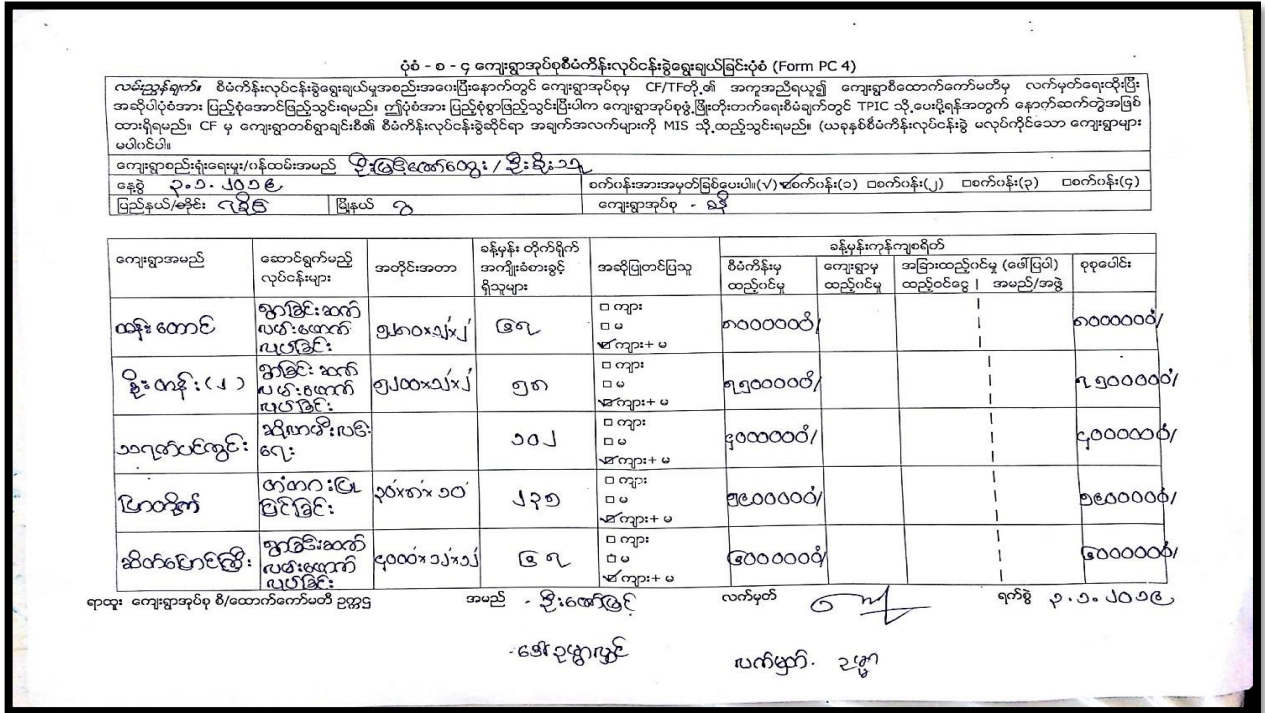 ပုံစံ - စ - ၄ ကျေးရွာအုပ်စုစီမံကိန်းလုပ်ငန်းခွဲရွေးချယ်ခြင်းပုံစံ (Form PC 4)
လမ်းညွှန်ချက်။ စီမံကိန်းလုပ်ငန်းခွဲရွေးချယ်မှုအစည်းအဝေးပြီးနောက်တွင် ကျေးရွာအုပ်စုမှ CF/TFတို့၏ အကူအညီရယူ၍ ကျေးရွာစီထောက်ကော်မတီမှ လက်မှတ်ရေးထိုးပြီး
အဆိုပါပုံစံအား ပြည့်စုံအောင်ဖြည့်သွင်းရမည်။ ဤပုံစံအား ပြည့်စုံစွာဖြည့်သွင်းပြီးပါက ကျေးရွာအုပ်စုဖွံ့ဖြိုးတိုးတက်ရေးစီမံချက်တွင် TPIC သို့ပေးပို့ရန်အတွက် နောက်ဆက်တွဲအဖြစ်
ထားရှိရမည်။ CF မှ ကျေးရွာတစ်ရွာချင်းစီ၏ စီမံကိန်းလုပ်ငန်းခွဲဆိုင်ရာ အချက်အလက်များကို MIS သို့ထည့်သွင်းရမည်။ (ယခုနှစ်စီမံကိန်းလုပ်ငန်းခွဲ မလုပ်ကိုင်သော ကျေးရွာများ
မပါဝင်ပါ။
ကျေးရွာစည်းရုံးရေးမှူး/ဝန်ထမ်းအမည်
နေ့စွဲ ၃.၁.၂၀၁၉ စက်ဝန်းအားအမှတ်ခြစ်ပေးပါ။(√) ☑စက်ဝန်း(၁) □စက်ဝန်း(၂) □စက်ဝန်း(၃) □စက်ဝန်း(၄)
ပြည်နယ်/တိုင်း ရခိုင် မြို့နယ် ဂွ ကျေးရွာအုပ်စု -
ကျေးရွာအမည် ဆောင်ရွက်မည့် လုပ်ငန်းများ အတိုင်းအတာ ခန့်မှန်း တိုက်ရိုက် အကျိုးခံစားခွင့် ရှိသူများ အဆိုပြုတင်ပြသူ ခန့်မှန်းကုန်ကျစရိတ်
စီမံကိန်းမှ ထည့်ဝင်မှု ကျေးရွာမှ ထည့်ဝင်မှု အခြားထည့်ဝင်မှု (ဖော်ပြပါ) ထည့်ဝင်ငွေ | အမည်/အဖွဲ့ စုစုပေါင်း
ထန်းတောင် ရွာခြင်းဆက် လမ်းဖောက် လုပ်ခြင်း ၆၇ □ ကျား □ မ ☑ ကျား+ မ ၈၀၀၀၀၀၀ိ/ ၈၀၀၀၀၀၀ိ/
ရွာခြင်းဆက် လမ်းဖောက် လုပ်ခြင်း ၅၈ □ ကျား □ မ ☑ ကျား+ မ ၇၅၀၀၀၀၀ိ/ ၇၅၀၀၀၀၀ိ/
သရက်ပင်ကွင်း ဆိုလာမီးလင်းရေး ၁၀၂ □ ကျား □ မ ☑ ကျား+ မ ၄၀၀၀၀၀ိ/ ၄၀၀၀၀၀ိ/
တံတားပြု ပြင်ခြင်း ၃၀'×၈'×၁၀' ၂၃၅ □ ကျား □ မ ☑ ကျား+ မ ၅၉၀၀၀၀ိ/ ၅၉၀၀၀၀ိ/
ရွာခြင်းဆက် လမ်းဖောက် လုပ်ခြင်း ၄၀၀၀'×၁၂'×၁၂' ၆၇ □ ကျား □ မ ☑ ကျား+ မ ၆၀၀၀၀၀ိ/ ၆၀၀၀၀၀ိ/
ရာထူး ကျေးရွာအုပ်စု စီ/ထောက်ကော်မတီ ဥက္ကဋ္ဌ အမည် - ဦးဇော်မြင့် လက်မှတ် ရက်စွဲ ၃.၁.၂၀၁၉
- ဒေါ်ဥမ္မာလွင် လက်မှတ်. ဥမ္မာ